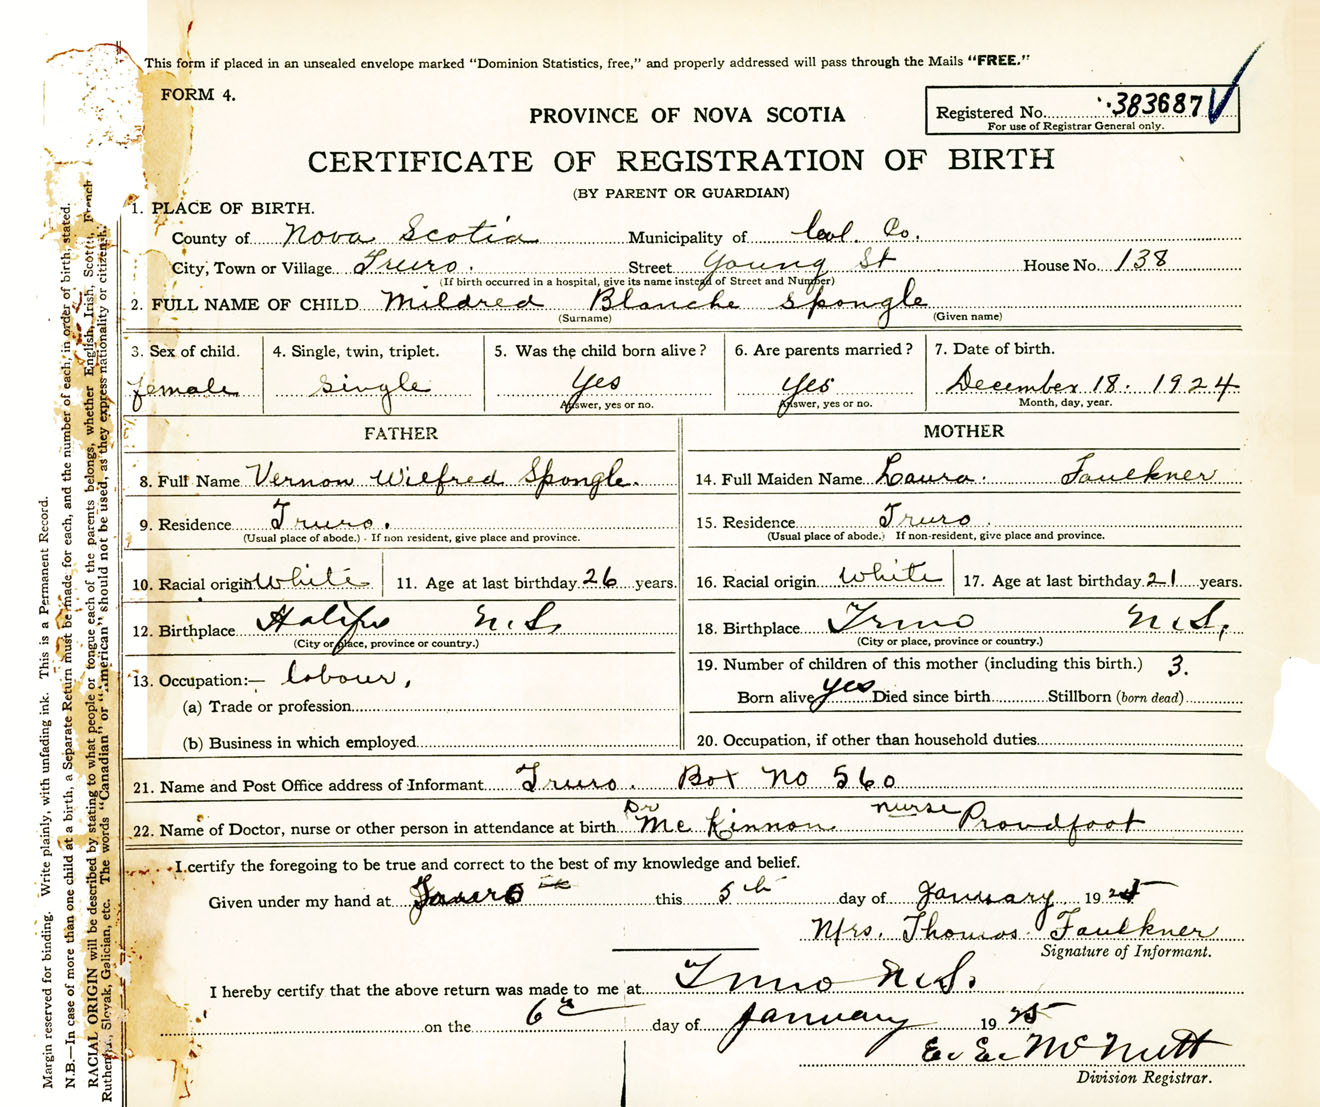 This form if placed in an unsealed envelope marked "Dominion Statistics, free," and properly addressed will pass through the Mails "FREE."
FORM 4.
PROVINCE OF NOVA SCOTIA
Registered No. 383687
For use of Registrar General only.
CERTIFICATE OF REGISTRATION OF BIRTH
(BY PARENT OR GUARDIAN)
1. PLACE OF BIRTH.
County of Nova Scotia Municipality of Col. Co.
City, Town or Village Truro. Street Young St House No. 138
(If birth occurred in a hospital, give its name instead of Street and Number)
2. FULL NAME OF CHILD Mildred Blanche Spongle
(Surname) (Given name)
3. Sex of child. 4. Single, twin, triplet. 5. Was the child born alive? 6. Are parents married? 7. Date of birth.
female single Yes Yes December 18. 1924
Answer, yes or no. Answer, yes or no. Month, day, year.
FATHER MOTHER
8. Full Name Vernon Wilfred Spongle. 14. Full Maiden Name Laura. Faulkner
9. Residence Truro. 15. Residence Truro.
(Usual place of abode.) - If non resident, give place and province. (Usual place of abode.) If non-resident, give place and province.
10. Racial origin White 11. Age at last birthday 26 years. 16. Racial origin White 17. Age at last birthday 21 years.
12. Birthplace Halifax N.S. 18. Birthplace Truro N.S.
(City or place, province or country.) (City or place, province or country.)
13. Occupation:— labour, 19. Number of children of this mother (including this birth.) 3.
(a) Trade or profession Born alive yes Died since birth Stillborn (born dead)
(b) Business in which employed 20. Occupation, if other than household duties
21. Name and Post Office address of Informant Truro. Box No 560
22. Name of Doctor, nurse or other person in attendance at birth Dr Mc Kinnon nurse Proudfoot
I certify the foregoing to be true and correct to the best of my knowledge and belief.
Given under my hand at Truro this 5th day of January 1925
Mrs. Thomas Faulkner
Signature of Informant.
I hereby certify that the above return was made to me at Truro N.S.
on the 6th day of January 1925
E. E. McNutt
Division Registrar.
Margin reserved for binding. Write plainly, with unfading ink. This is a Permanent Record.
N.B.—In case of more than one child at a birth, a Separate Return must be made for each, and the number of each, in order of birth, stated.
RACIAL ORIGIN will be described by stating to what people or tongue each of the parents belongs, whether English, Irish, Scotti, French
Slovak, Galician, etc. The words "Canadian" or "American" should not be used, as they express nationality or citizensh.